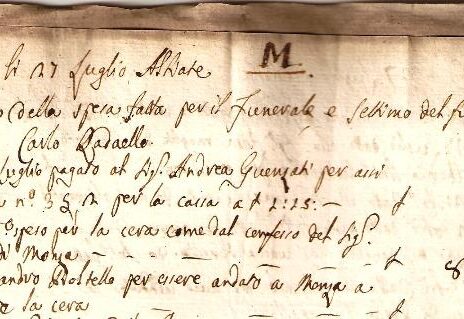 M.
li 27 Luglio Albiate
o della spesa fatta per il Funerale e settimo del f
Carlo Radaello
Luglio pagato al Sig. Andrea Guenzati per assi
n.º 3 § 2 per la cassa a £ 1:15:—
speso per la cera come dal confesso del Sig.
di Monza
andro per essere andato a Monza a
la cera